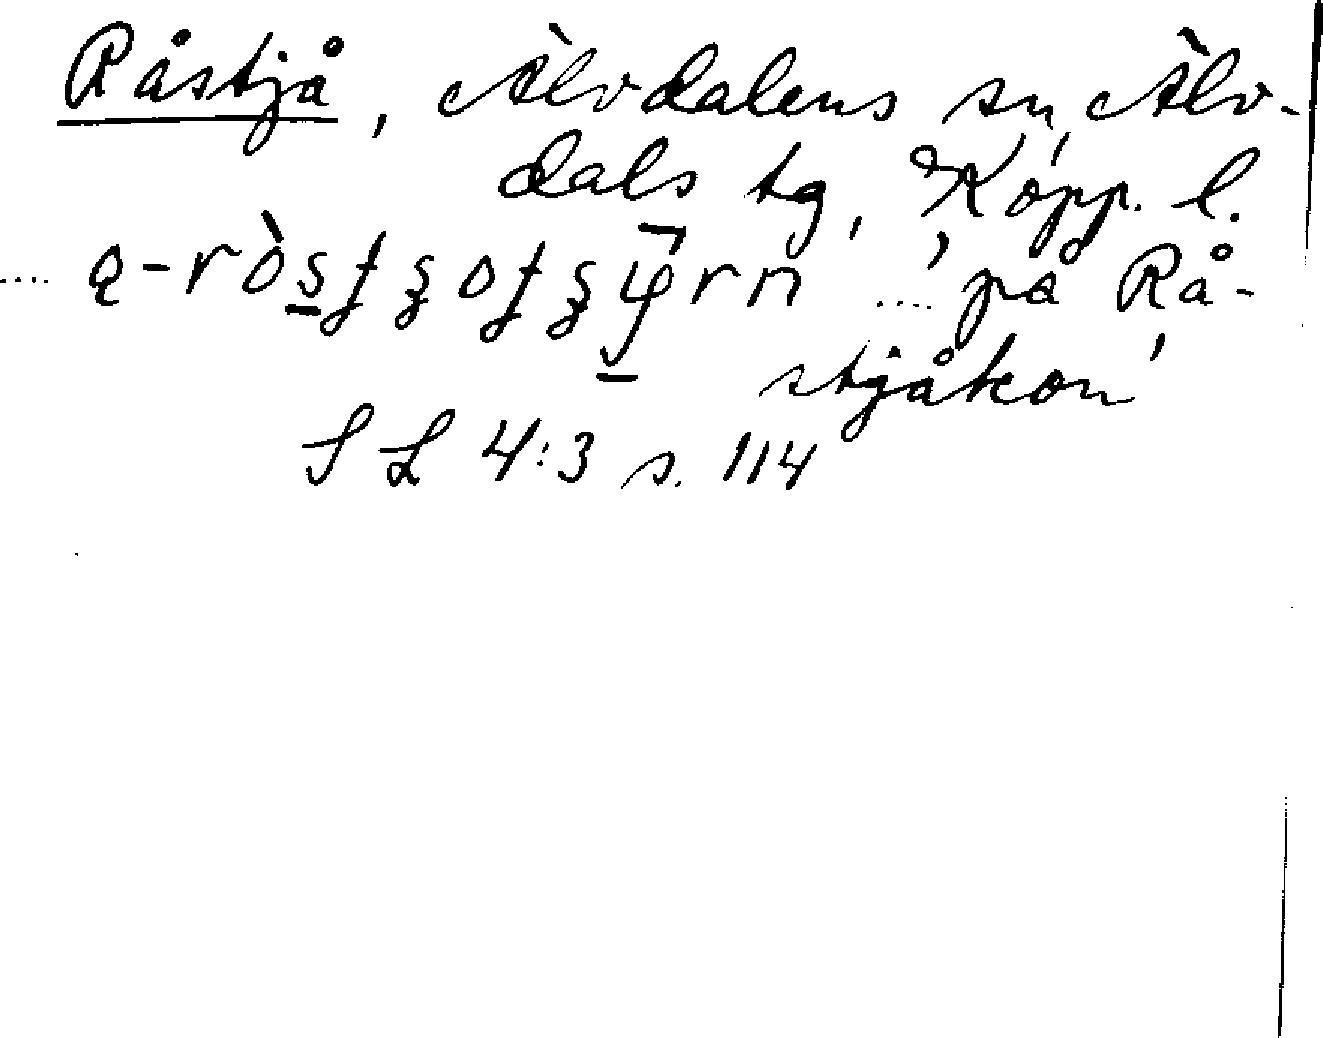 Råstjå, Älvdalens sn, Älv-
dals tg, Kopp. l.
.... på Rå-
stjåkon'
SL 4:3 s. 114